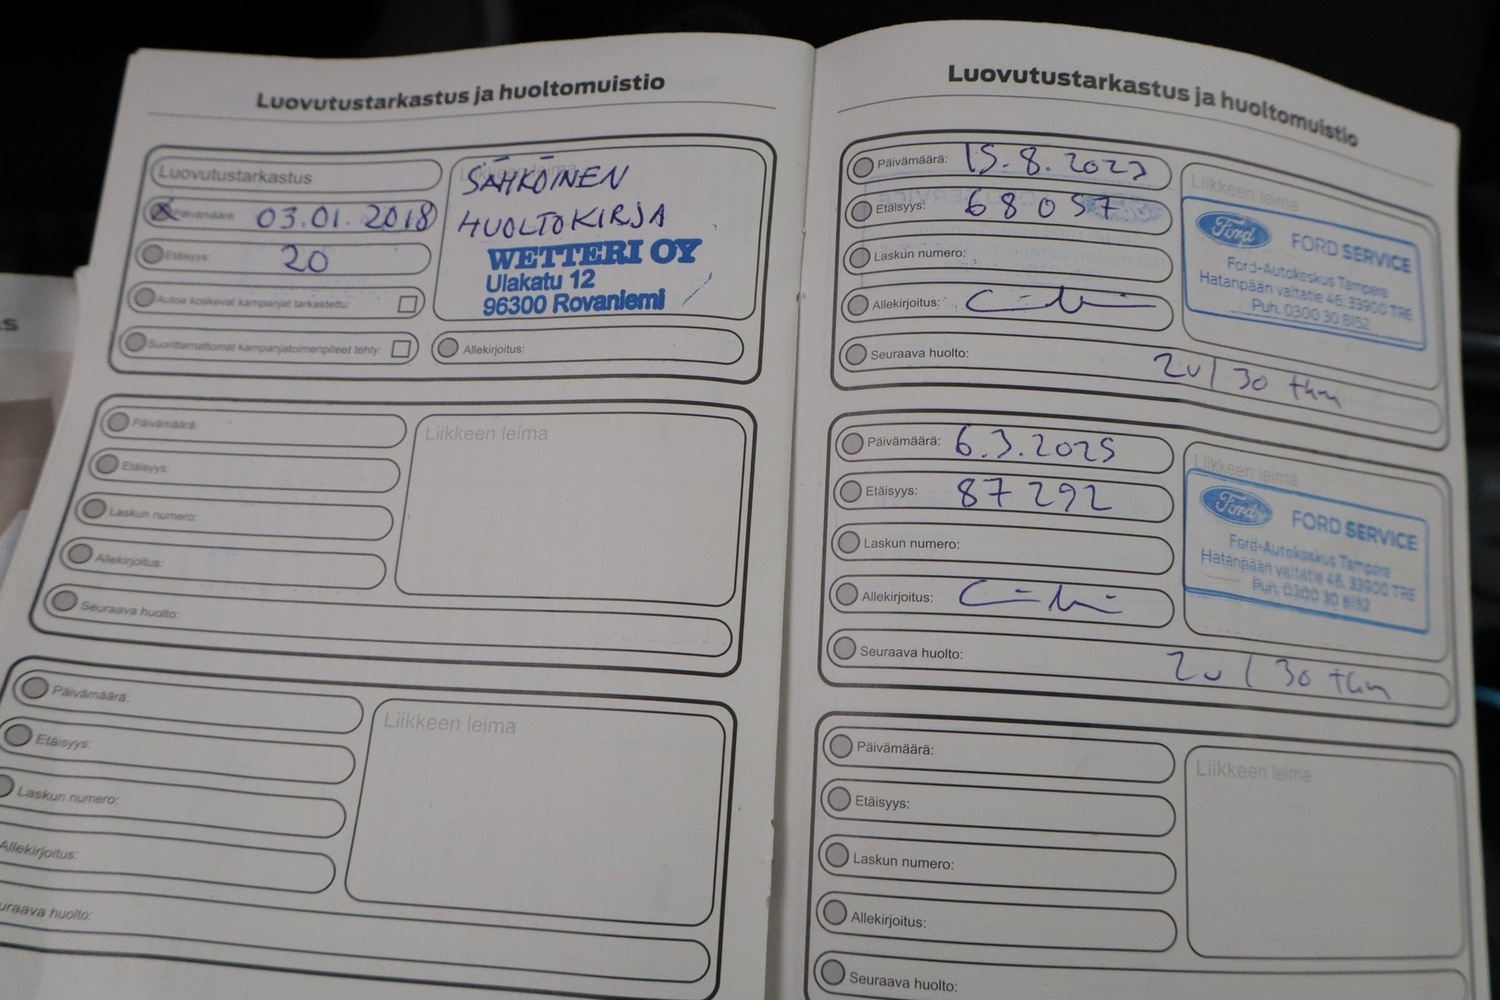 Luovutustarkastus ja huoltomuistio
Luovutustarkastus
Päivämäärä: 03.01.2018
Etäisyys: 20
Autoa koskevat kampanjat tarkastettu:
Suorittamattomat kampanjatoimenpiteet tehty:
Liikkeen leima
SÄHKÖINEN
HUOLTOKIRJA
WETTERI OY
Ulakatu 12
96300 Rovaniemi
Allekirjoitus:
Päivämäärä:
Etäisyys:
Laskun numero:
Allekirjoitus:
Seuraava huolto:
Liikkeen leima
Päivämäärä:
Etäisyys:
Laskun numero:
Allekirjoitus:
uraava huolto:
Liikkeen leima
Luovutustarkastus ja huoltomuistio
Päivämäärä: 15.8.2023
Etäisyys: 68057
Laskun numero:
Allekirjoitus:
Seuraava huolto: 2v / 30 tkm
Liikkeen leima
Ford FORD SERVICE
Ford-Autokeskus Tampere
Hatanpään valtatie 46, 33900 TRE
Puh. 0300 30 8152
Päivämäärä: 6.3.2025
Etäisyys: 87292
Laskun numero:
Allekirjoitus:
Seuraava huolto: 2v / 30 tkm
Liikkeen leima
Ford FORD SERVICE
Ford-Autokeskus Tampere
Hatanpään valtatie 46, 33900 TRE
Puh. 0300 30 8152
Päivämäärä:
Etäisyys:
Laskun numero:
Allekirjoitus:
Seuraava huolto:
Liikkeen leima